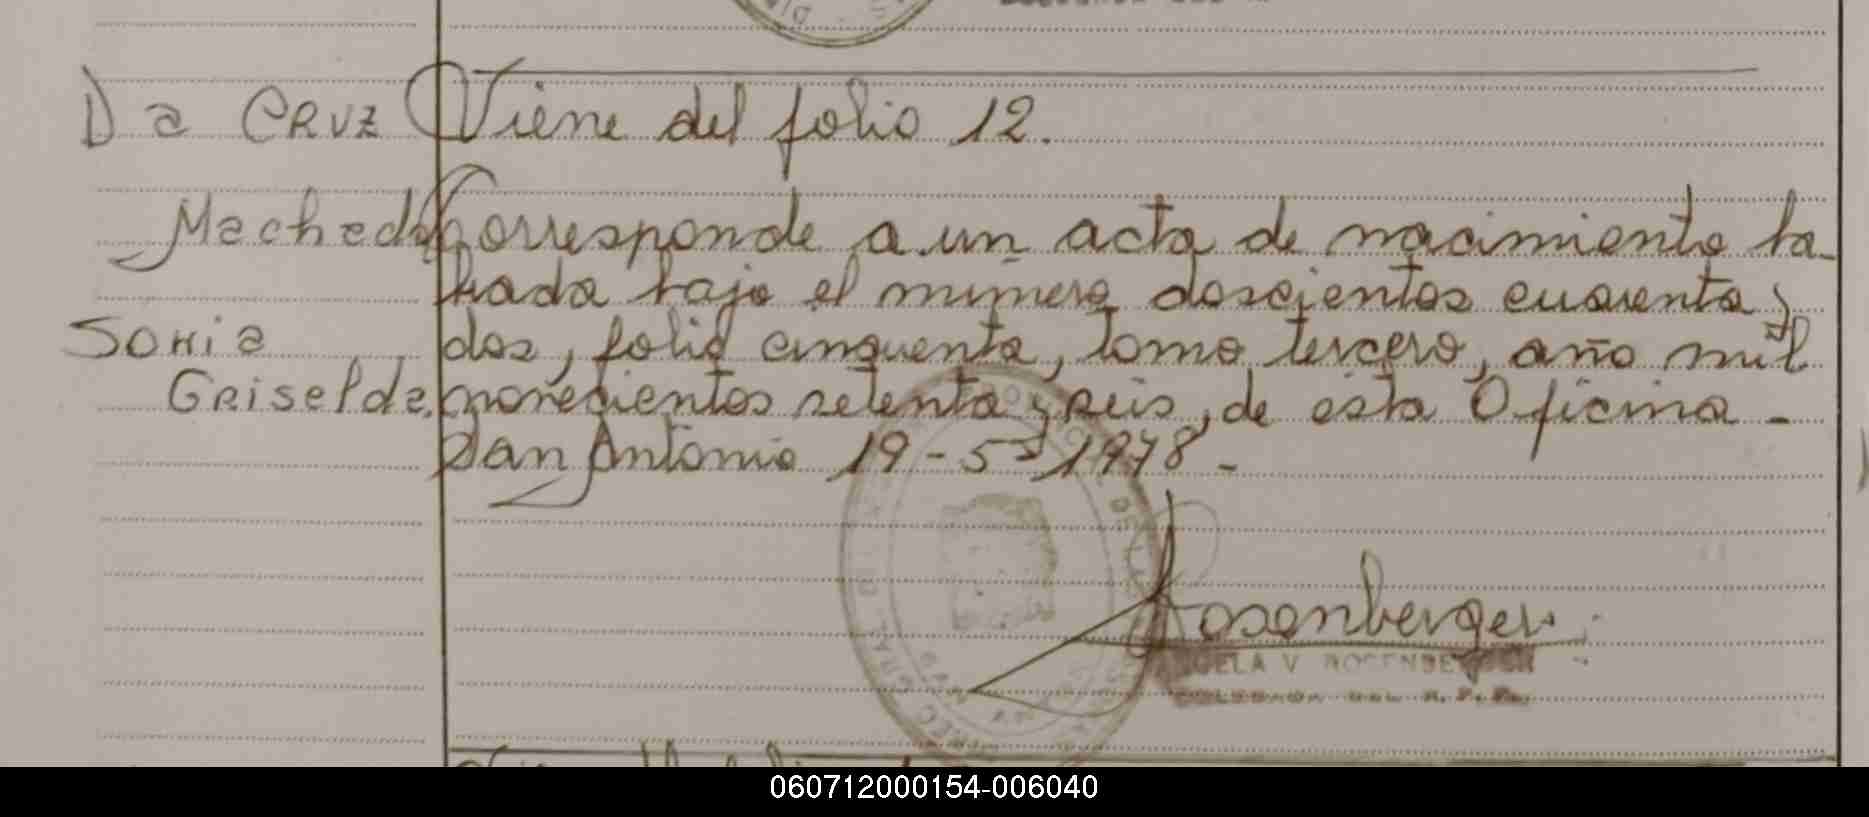 Da CRUZ
Machado
Sonia
Griselda.
Viene del folio 12.
Corresponde a un acta de nacimiento la-
brada bajo el número doscientos cuarenta y
dos, folio cinquenta, tomo tercero, año mil
novecientos setenta y seis, de esta Oficina -
San Antonio 19-5-1978 -
Rosenberger
ANGELA V ROSENBERGER
DELEGADA DEL R. P. P.
060712000154-006040